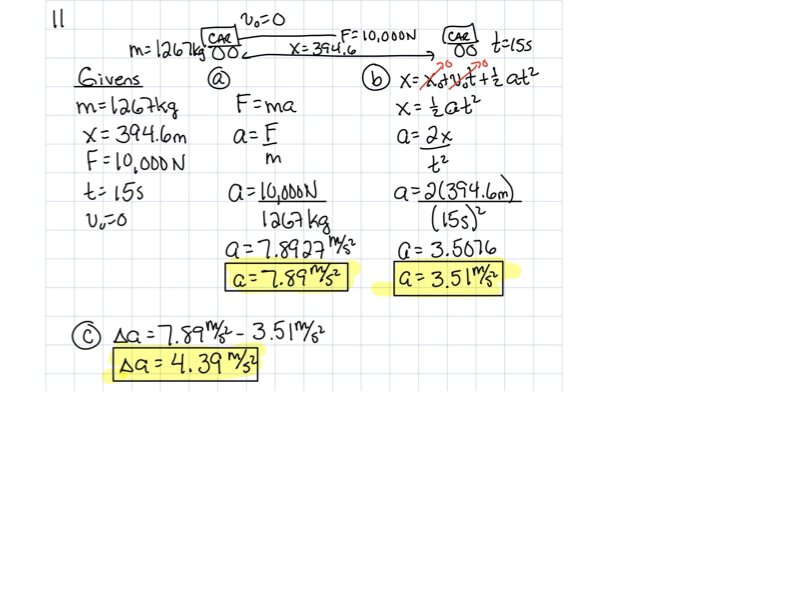 11
v₀=0
CAR
F=10,000N
CAR
m=1267kg
x=394.6
t=15s
Givens
m=1267kg
x=394.6m
F=10,000N
t=15s
v₀=0
a
F=ma
a=F/m
a=10,000N/1267kg
a=7.8927 m/s²
a=7.89 m/s²
b
x=x₀+v₀t+½at²
0 0
x=½at²
a=2x/t²
a=2(394.6m)/(15s)²
a=3.5076
a=3.51 m/s²
c
Δa=7.89 m/s² - 3.51 m/s²
Δa=4.39 m/s²